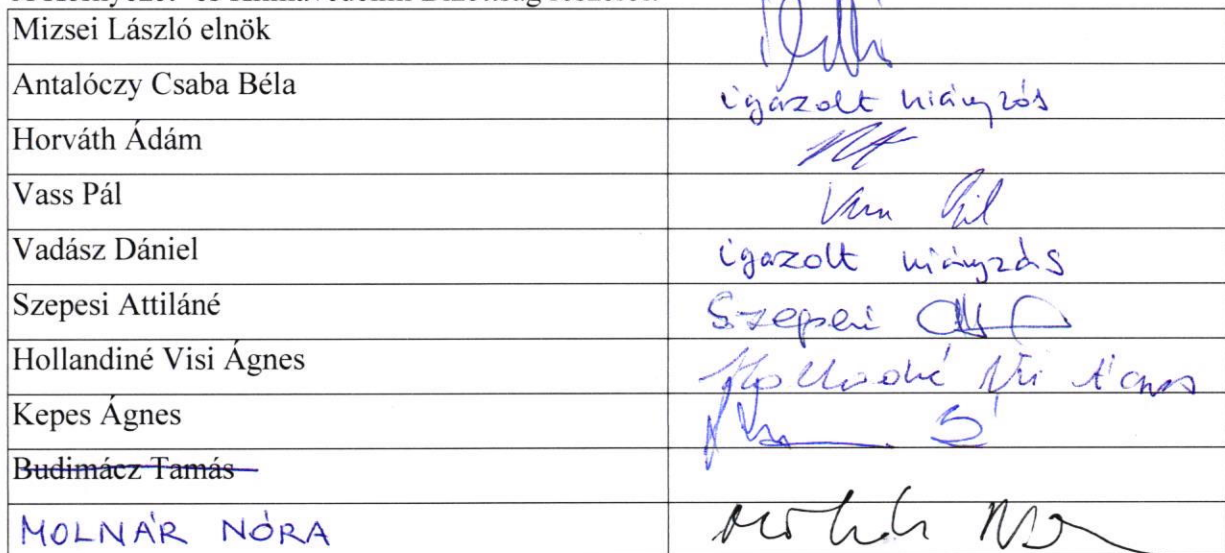 Mizsei László elnök
Antalóczy Csaba Béla igazolt hiányzás
Horváth Ádám
Vass Pál Vass Pál
Vadász Dániel igazolt hiányzás
Szepesi Attiláné Szepesi
Hollandiné Visi Ágnes Hollandiné Visi Ágnes
Kepes Ágnes
Budimácz Tamás
MOLNÁR NÓRA Molnár Nóra